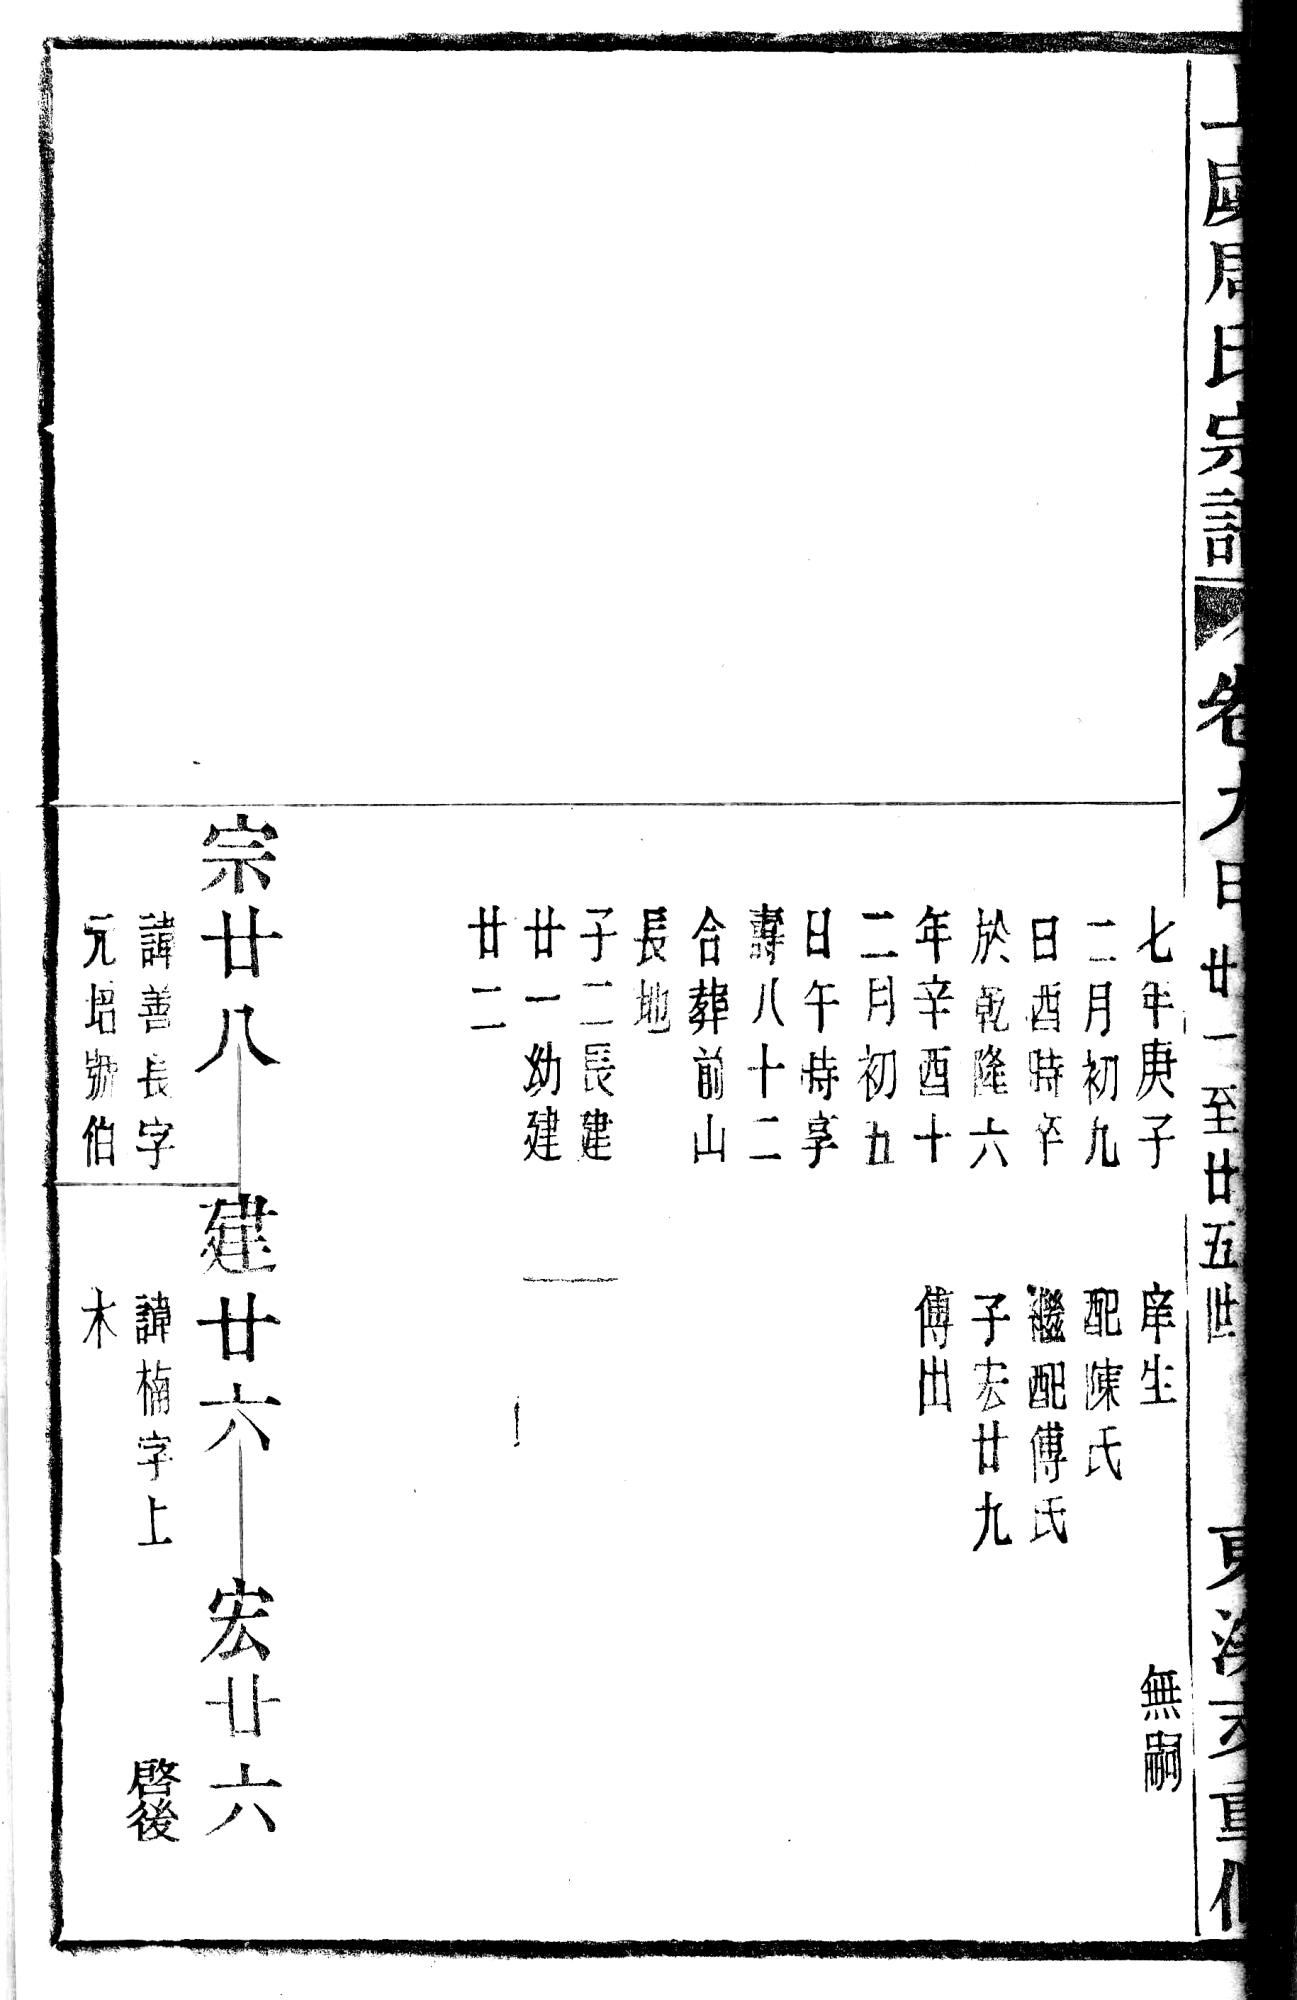 周氏宗譜
卷九
廿一至廿五世
七年庚子
二月初九
日酉時卒
於乾隆六
年辛酉十
二月初五
日午時享
壽八十二
合葬前山
長地
子二長建
廿一幼建
廿二
庠生
配陳氏
繼配傅氏
子宏廿九
傅出
無嗣
宗廿八
諱善長字
元培號伯
建廿六
諱楠字上
木
宏廿六
啓後